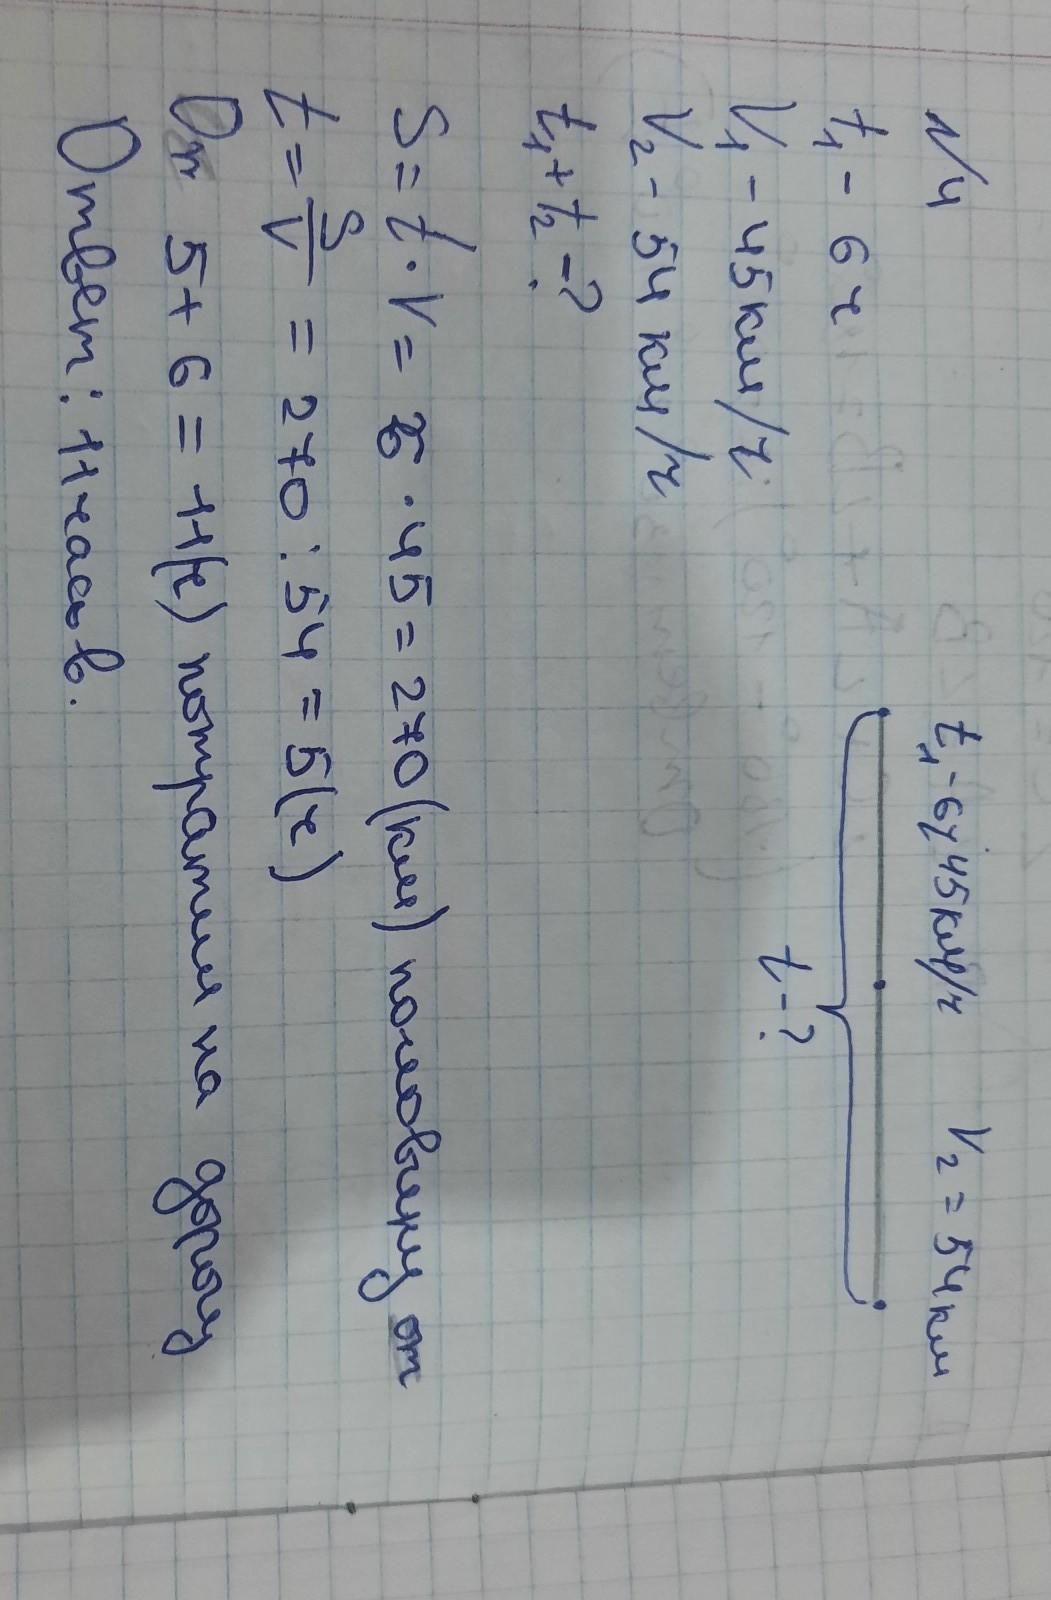 N4
t₁ - 6ч
V₁ - 45км/ч
V₂ - 54 км/ч
t₁ + t₂ - ?
t₁ - 6ч 45км/ч V₂ = 54км
t - ?
S = t · V = 6 · 45 = 270 (км) половину от
t = S/V = 270 : 54 = 5 (ч)
5 + 6 = 11(ч) потратили на дорогу
Ответ: 11 часов.